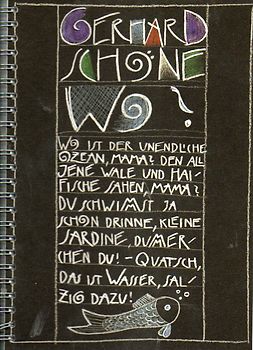 GERHARD
SCHÖNE
WO ?
WO IST DER UNENDLICHE
OZEAN, MAMA? DEN ALL
JENE WALE UND HAI-
FISCHE SAHEN, MAMA?
DU SCHWIMST JA
SCHON DRINNE, KLEINE
SARDINE, DUMER-
CHEN DU! - QUATSCH,
DAS IST WASSER, SAL-
ZIG DAZU!